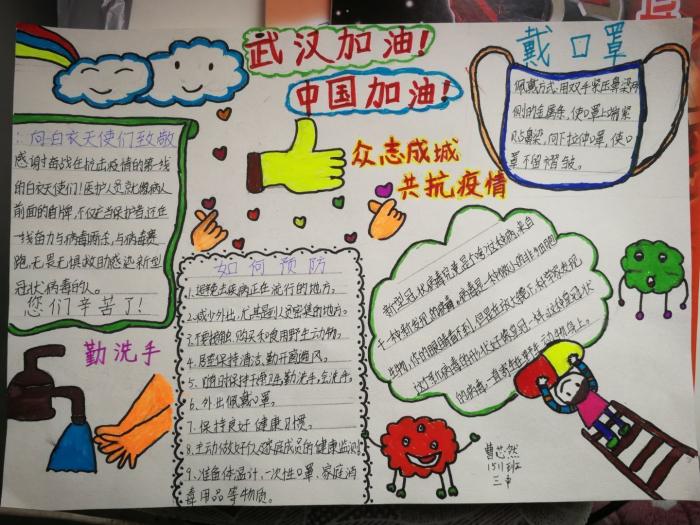 武汉加油!
中国加油!
众志成城
共抗疫情
戴口罩
佩戴方式:用双手紧压鼻梁两
侧的金属条,使口罩上端紧
贴鼻梁,向下拉伸口罩,使口
罩不留褶皱。
向白衣天使们致敬
感谢奋战在抗击疫情的第一线
的白衣天使们!医护人员就像病人
前面的盾牌,不仅充当保护者还在
一线奋力与病毒厮杀,与病毒赛
跑,无畏无惧救助感染新型
冠状病毒的人。
您们辛苦了!
勤洗手
如何预防
1、避免去疾病正在流行的地方。
2、减少外出,尤其是到人员密集的地方。
3、不要接触、购买和食用野生动物。
4、居室保持清洁,勤开窗通风。
5、随时保持手卫生,勤洗手,会洗手。
6、外出佩戴口罩。
7、保持良好健康习惯。
8、主动做好个人及家庭成员的健康监测
9、准备体温计、一次性口罩、家庭消
毒用品等物质。
新型冠状病毒究竟是个
来自
于一种新发现的病毒,病毒是一种微小的非细胞
生物,你的眼睛看不到,但是在放大镜下,科学家发现
这个新病毒的形状好像皇冠一样,这种冠状
的病毒一直寄生在野生动物身上。
1511班
三中